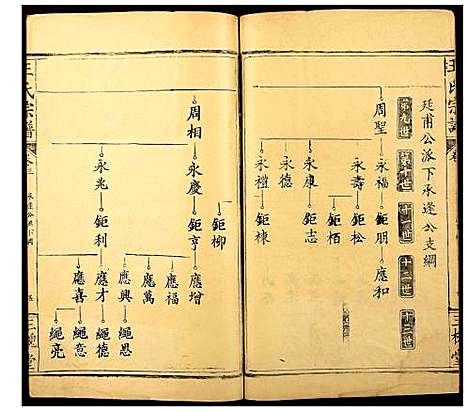 王氏宗譜
廷甫公派下承逢公支綱
第九世
第十世
十一世
十二世
十三世
周聖
永福
鉅朋
應和
永壽
鉅松
鉅栢
永康
鉅志
永德
永禮
鉅棟
鉅柳
周相
永慶
鉅亨
應增
應福
應萬
永兆
鉅利
應興
繩恩
應才
繩德
應喜
繩意
繩亮
王氏宗譜
卷三
三槐堂
三槐堂